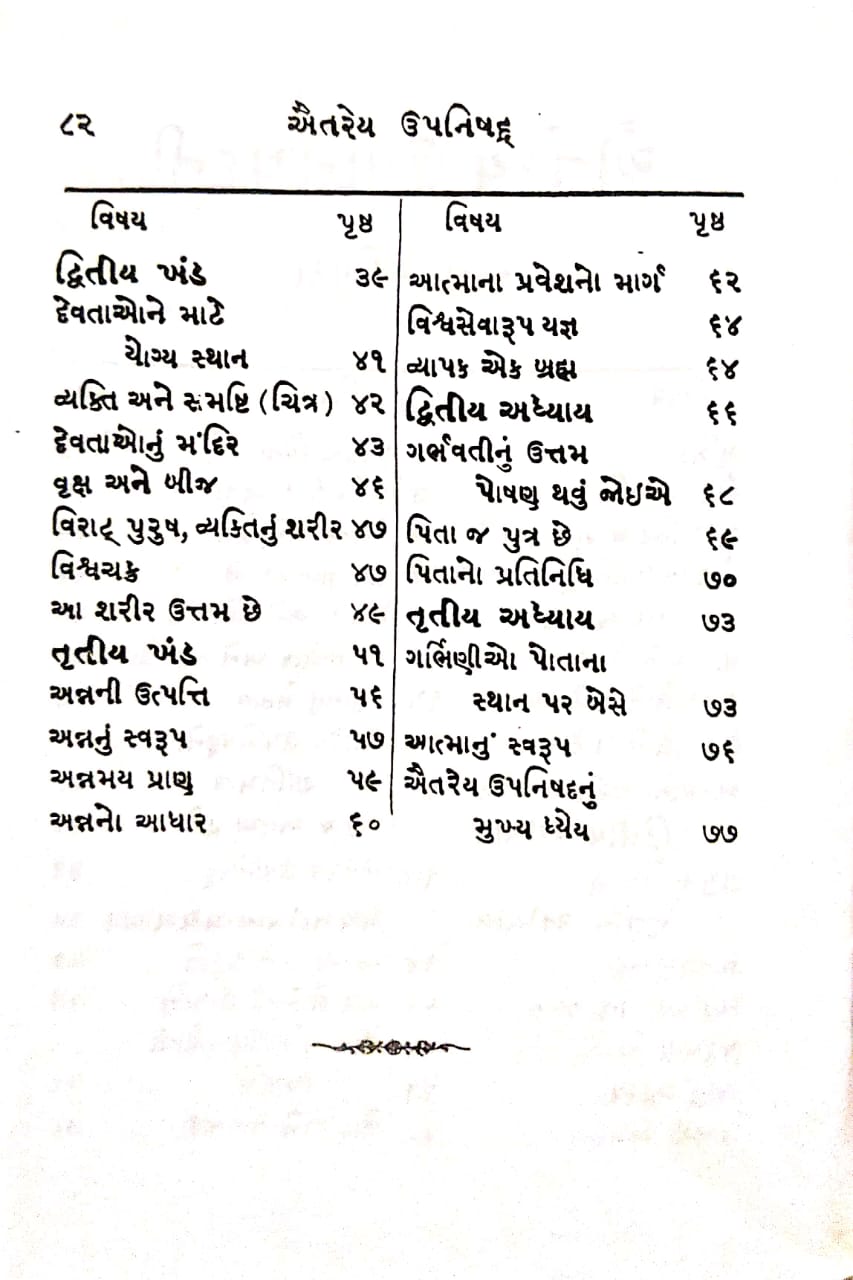 ૮૨ ઐતરેય ઉપનિષદ્
વિષય પૃષ્ઠ
દ્વિતીય ખંડ ૩૯
દેવતાઓને માટે
યોગ્ય સ્થાન ૪૧
વ્યક્તિ અને સમષ્ટિ (ચિત્ર) ૪૨
દેવતાઓનું મંદિર ૪૩
વૃક્ષ અને બીજ ૪૬
વિરાટ્ પુરુષ, વ્યક્તિનું શરીર ૪૭
વિશ્વચક્ર ૪૭
આ શરીર ઉત્તમ છે ૪૯
તૃતીય ખંડ ૫૧
અન્નની ઉત્પત્તિ ૫૬
અન્નનું સ્વરૂપ ૫૭
અન્નમય પ્રાણ ૫૯
અન્નનો આધાર ૬૦
વિષય પૃષ્ઠ
આત્માના પ્રવેશનો માર્ગ ૬૨
વિશ્વસેવારૂપ યજ્ઞ ૬૪
વ્યાપક એક બ્રહ્મ ૬૪
દ્વિતીય અધ્યાય ૬૬
ગર્ભવતીનું ઉત્તમ
પોષણ થવું જોઇએ ૬૮
પિતા જ પુત્ર છે ૬૯
પિતાનો પ્રતિનિધિ ૭૦
તૃતીય અધ્યાય ૭૩
ગર્ભિણીઓ પોતાના
સ્થાન પર બેસે ૭૩
આત્માનું સ્વરૂપ ૭૬
ઐતરેય ઉપનિષદનું
મુખ્ય ધ્યેય ૭૭